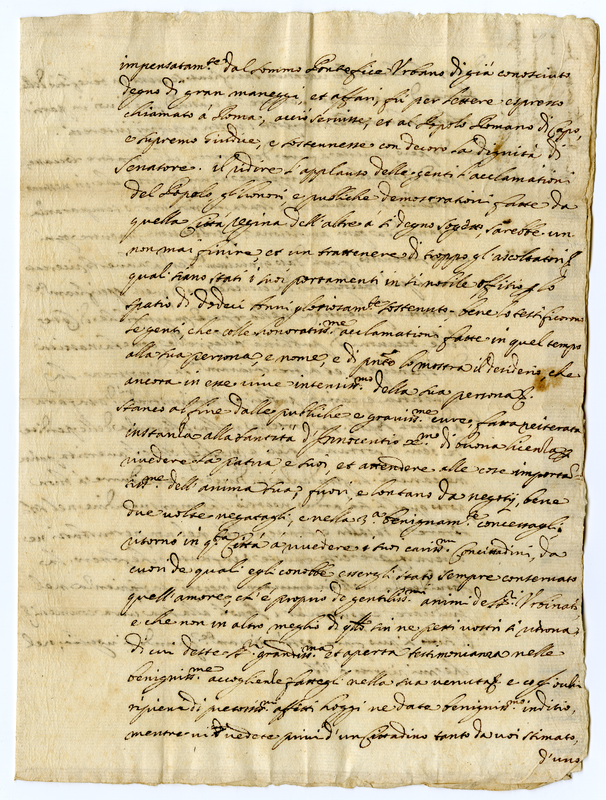 impensatam.te dal sommo Pontefice Urbano di già conosciuto
degno di gran maneggi, et affari, fù per lettere espresso
chiamato à Roma, acciò servisse, et al Popolo Romano di Capo,
e supremo Giudice, e sostennesse con decoro la Dignità di
Senatore. il udire l'applauso delle genti l'acclamationi
del Popolo gl'honori, e publiche demostrationi fatte da
quella Città Regina dell'altre a sì degno sogetto, sarebbe un
non mai finire, et un trattenere di troppo gl'ascoltatori
quali siano stati i suoi portamenti in sì nobile offitio lo
spatio di dodeci anni gloriosam.te sostenuto bene lo testificorno
le genti, che colle honoratiss.me acclamationi fatte in quel tempo
alla sua persona e nome, e di lo mostra il desiderio, che
ancora in esse vive intensiss.mo della sua persona.
Stanco al fine dalle publiche e graviss.me cure, fatta reiterata
instanza alla Santità d'Innocentio X.mo di buona licenza
rivedere la Patria e suoi, et attendere alle cose importan-
tiss.me dell'anima sua, fuori, e lontano da negotij, bene
due volte negatagli, e nella 3.a benignam.te concessagli
ritornò in q.a Città à rivedere i suoi cariss.mi Concittadini, da
cuori de quali egli conobbe essergli stato sempre conservato
quell'amore, ch'è proprio de gentiliss.mi animi de S.ri Urbinati
e che non in altro meglio di q.llo sin ne petti vostri si ritrova,
di cui deste grandiss.ma et aperta testimonianza nelle
benigniss.me accoglienze fattegli nella sua venuta, e
ripiena di affetti hoggi ne date benigniss.mo inditio,
mentre vi vedete privi d'un Cittadino tanto da voi stimato,
d'uno